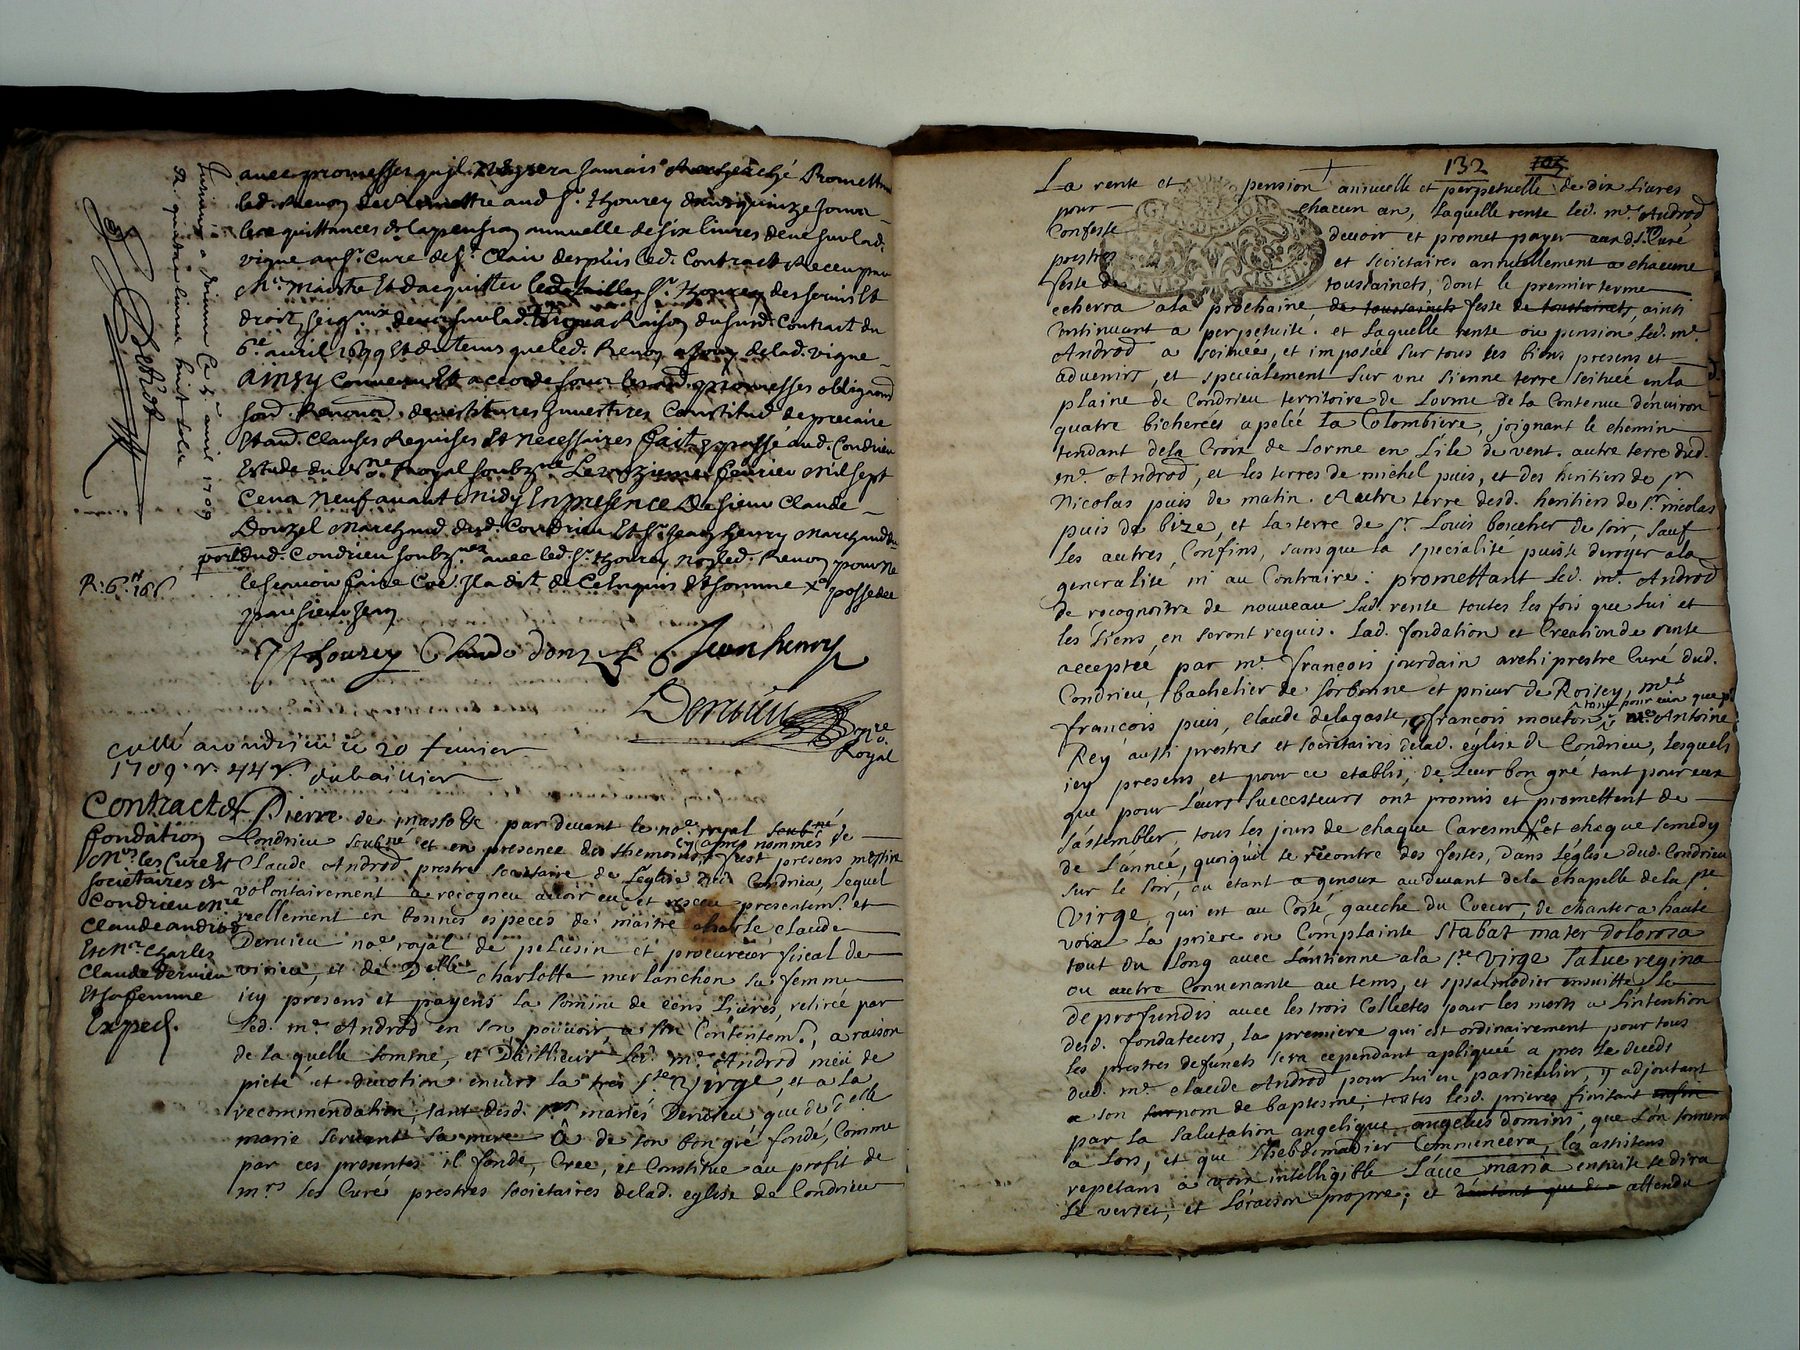 avec promesses qu'il n'y sera jamais recherché Promettra
led. Renoy de remettre aud Sr. Thourey dans quinze jours
les quittances de la pension annuelle de six livres deue sur lad.
vigne au Sr. Curé de St. Clair depuis led. Contract Receu par
Me. Maistre Et d'acquitter Sr. Thourey des servis Et
droit seigneuriaux deus sur lad. vigne a Raison du susd. Contract du
6e. avril 1699 Et du tems que led. Renoy a jouy de lad. vigne
Ainsy Convenu Et accordé sous les promesses obligaons
devestitures Investitures Constitud de precaire
Et aud. Clauses Requises Et necessaires fait & passé aud. Condrieu
Estude du nre Royal soubzné Le onzieme fevrier Mil sept
Cens Neuf avant Midy En presence De sieur Claude
Donzel Marchand dud. Condrieu Et Sr. Jean henry Marchand du
port dud. Condrieu soubznez avec led. Sr. Thourey Non led. Renoy pour ne
le scavoir faire
par sieur Jean
R. 6s.
J Thourey Claude donzel Jean henry
Dervieu nre
Royal
Collé a Condrieu ce 20 fevrier
1709. r. 44s.
Contract de
fondation
Mrs. les Curé Et
societaires de
Condrieu Mre
Claude androd
Et Mre. Charles
Claude Dervieu
Et sa femme
Exped.
par devant le nore. royal
Condrieu soubné et en presence des themoins cy apres nommés fust present messire
Claude Androd prestre societaire de l'église dud. Condrieu, lequel
volontairement a recogneu avoir eu et receu presentemt. et
reellement en bonnes especes de maitre charle claude
Dervieu nore royal de pelusin et procureur fiscal de
virieu, et de Delle charlotte merlanchon sa femme
icy presens et payens la somme de cens livres, retirée par
led. me. Androd en son pouvoir, a son Contentemt., a raison
de la quelle somme, et D'ailleurs led. me. Androd meu de
pieté et devotion envers la tres ste Vierge, et a la
recommendation, tant desd. mariés Dervieu, que de Delle
marie servante sa mere A de son bon gré fondé, Comme
par ces presentes il fonde, Crée, et Constitue au profit de
mrs les Curé prestres societaires de lad. eglise de Condrieu
132
La rente et pension annuelle et perpetuelle de dix livres
pour chacun an, laquelle rente led. me. Androd
Confesse devoir et promet payer auxd. Srs. Curé
prestres et societaires annuellement a chacune
feste de toussainets, dont le premier terme
echerra a la prochaine, de toussainets feste de toussainets, ainsi
Continuant a perpetuité. et laquelle rente ou pension led. me.
Androd a scituée, et imposée sur tous les biens presens et
advenirs, et specialement sur une sienne terre scituée en la
plaine de Condrieu territoire de Lorme de la Contenue d'environ
quatre bicherées apelée La Colombiere, joignant le chemin
tendant de la Croix de Lorme en L'ile de vent. autre terre dud.
me. Androd, et les terres de michel puis, et des heritiers de sr
Nicolas puis de matin. Autre terre desd. heritiers de sr. nicolas
puis de bize, et la terre de sr. Louis boucher de soir, sauf
les autres Confins, sans que la specialité puisse deroger a la
generalité ni au Contraire: promettant led. me. Androd
de recognoitre de nouveau lad. rente toutes les fois que lui et
les siens en seront requis. Lad. fondation et Creation de rente
acceptée par me. françois jourdain archiprestre Curé dud.
Condrieu, bachelier de Sorbonne et prieur de Roisey, mes
françois puis, Claude delagaste, françois mouton, Antoine
Rey aussi prestres et societaires de lad. église de Condrieu, lesquels
icy presens et pour ce etablis, de leur bon gré tant pour eux
que pour leurs successeurs ont promis et promettent de
s'assembler tous les jours de chaque Caresme et chaque semedy
de l'année, quoiqu'il se recontre des festes, dans l'église dud. Condrieu
sur le soir, ou etant a genoux au devant de la chapelle de la ste
Virge, qui est au Costé gauche du Coeur, de chanter a haute
voix la priere ou Complainte Stabat mater dolorosa
tout du long avec l'antienne a la ste Virge Salve regina
ou autre Convenante au tems, et spalmodier ensuitte le
de profundis avec les trois Collectes pour les morts a l'intention
desd. fondateurs, la premiere qui est ordinairement pour tous
les prestres defunets sera cependant apliquée a pres le deceds
dud. me. claude Androd pour lui en particulier, y adjoutant
a son nom de baptesme; toutes lesd. prieres finitant
par la salutation angelique angelus domini, que l'on sonnera
a lors, et que l'hebdomadier Commencera, les assistens
repetans a voix intelligible L'ave maria ensuite se dira
le verset, et l'oraison propre; et d'autant que attendu